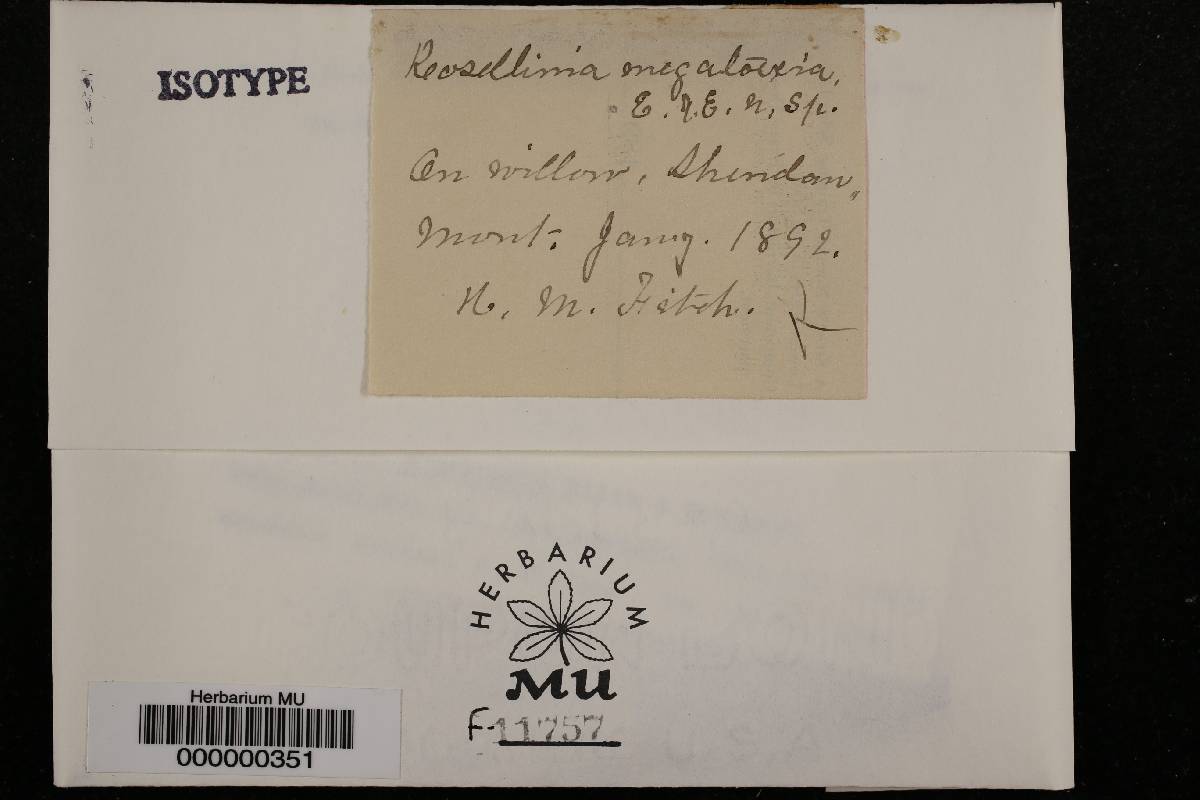 ISOTYPE
Rosellinia megaloecia,
E. & E. n. sp.
On willow, Sheridan,
Mont. Jany. 1892.
H. M. Fitch.
HERBARIUM
MU
F-11757
Herbarium MU
000000351